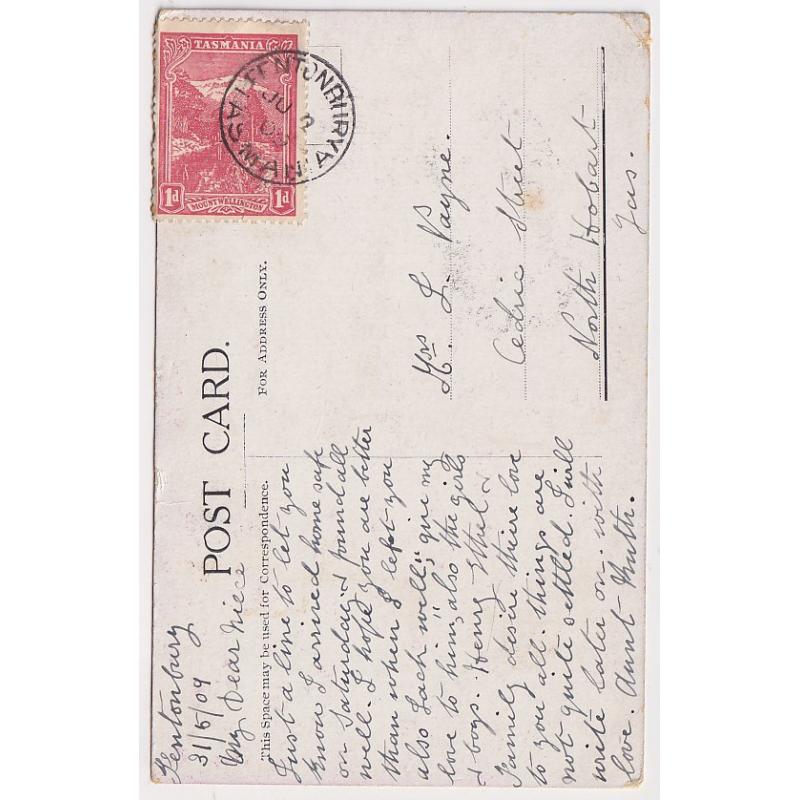 Fentonbury
31/5/09
My Dear Niece
Just a line to let you
know I arrived home safe
on Saturday & found all
well. I hope you are better
than when I left you
also Jack well, give my
love to him, also the girls
& boys. Henry Ethel &
Family desire there love
to you all. things are
not quite settled. I will
write later on. with
love. Aunt Ruth.
POST CARD.
This Space may be used for Correspondence.
FOR ADDRESS ONLY.
Mrs L Payne.
Cedric Street
North Hobart
Tas.
TASMANIA
1d
MOUNT WELLINGTON
1d
FENTONBURY
JU 2
09
TASMANIA